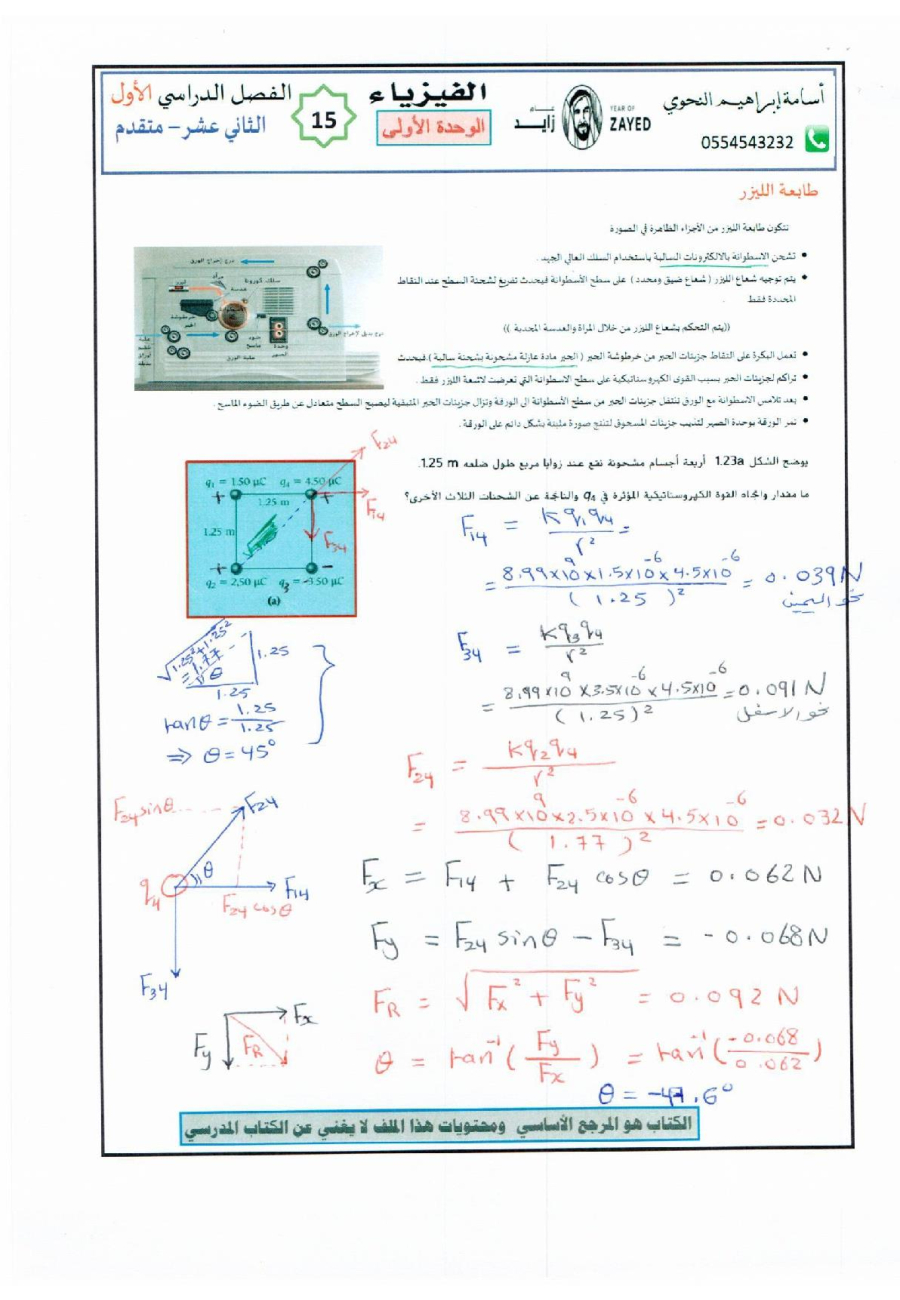 أسامة إبراهيم النحوي
0554543232
YEAR OF
ZAYED
عام
زايد
الفيزياء
الوحدة الأولى
15
الفصل الدراسي الأول
الثاني عشر – متقدم
طابعة الليزر
تتكون طابعة الليزر من الأجزاء الظاهرة في الصورة
• تشحن الاسطوانة بالالكترونات السالبة باستخدام السلك العالي الجهد.
• يتم توجيه شعاع الليزر ( شعاع ضيق ومحدد ) على سطح الأسطوانة فيحدث تفريغ لشحنة السطح عند النقاط
المحددة فقط .
((يتم التحكم بشعاع الليزر من خلال المرآة والعدسة المحدبة ))
• تعمل البكرة على التقاط جزيئات الحبر من خرطوشة الحبر ( الحبر مادة عازلة مشحونة بشحنة سالبة ) فيحدث
• تراكم لجزيئات الحبر بسبب القوى الكهروستاتيكية على سطح الاسطوانة التي تعرضت لاشعة الليزر فقط .
• بعد تلامس الاسطوانة مع الورق تنتقل جزيئات الحبر من سطح الأسطوانة الى الورقة وتزال جزيئات الحبر المتبقية ليصبح السطح متعادل عن طريق الضوء الماسح .
• تمر الورقة بوحدة الصهر لتذيب جزيئات المسحوق لتنتج صورة مثبتة بشكل دائم على الورقة .
درج إخراج الورق
سلك كورونا
مرآة
عدسة
ليزر
خرطوشة
الحبر
وحدة
الصهر
يوضح الشكل 1.23a أربعة أجسام مشحونة تقع عند زوايا مربع طول ضلعه 1.25 m.
ما مقدار واتجاه القوة الكهروستاتيكية المؤثرة في q4 والناتجة عن الشحنات الثلاث الأخرى؟
F24
q₁ = 1.50 µC q₄ = 4.50 µC
+ +
1.25 m
F14
1.25 m
F34
+ -
q₂ = 2.50 µC q₃ = -3.50 µC
(a)
F14 = Kq1q4 / r² =
= 8.99×10⁹×1.5×10⁻⁶×4.5×10⁻⁶ / (1.25)² = 0.039N
نحو اليمين
F34 = Kq3q4 / r²
= 8.99×10⁹×3.5×10⁻⁶×4.5×10⁻⁶ / (1.25)² = 0.091N
نحو الاسفل
√1.25²+1.25²
=1.77
θ
1.25
1.25
tanθ = 1.25 / 1.25
⇒ θ = 45°
F24 = Kq2q4 / r²
= 8.99×10⁹×2.5×10⁻⁶×4.5×10⁻⁶ / (1.77)² = 0.032N
F24 sinθ
F24
q4
θ
F14
F24 cosθ
F34
Fx = F14 + F24 cosθ = 0.062N
Fy = F24 sinθ − F34 = -0.068N
FR = √Fx² + Fy² = 0.092 N
Fx
Fy
FR
θ = tan⁻¹(Fy / Fx) = tan⁻¹(-0.068 / 0.062)
θ = -47.6°
الكتاب هو المرجع الأساسي ومحتويات هذا الملف لا يغني عن الكتاب المدرسي